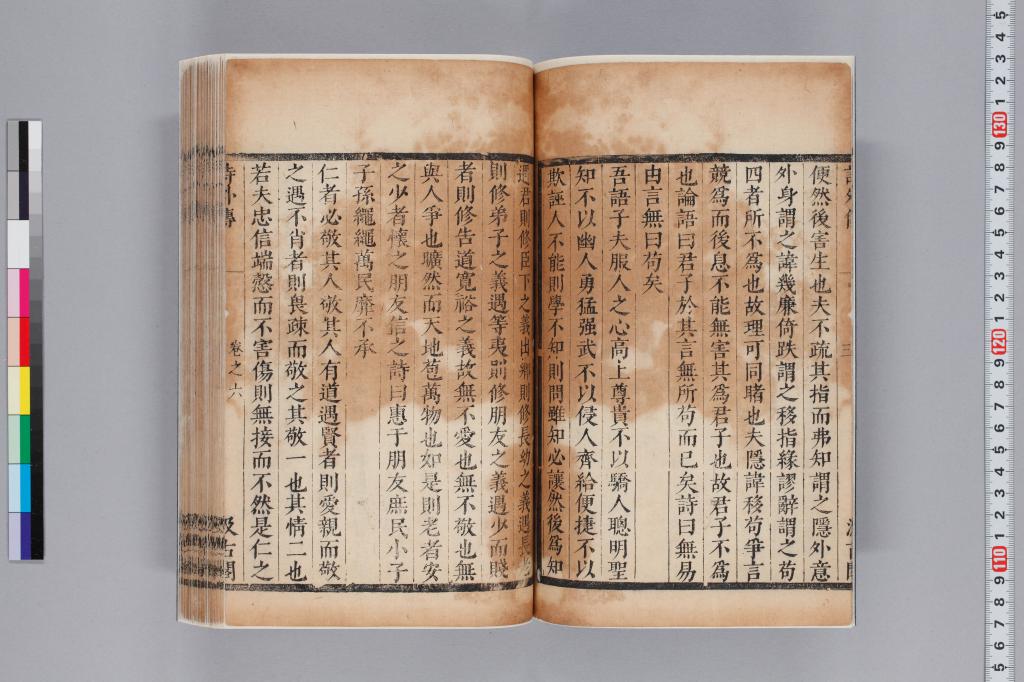 便然後害生也夫不疏其指而弗知謂之隱外意
外身謂之諱幾廉倚跌謂之移指緣謬辭謂之苟
四者所不爲也故理可同睹也夫隱諱移苟爭言
競爲而後息不能無害其爲君子也故君子不爲
也論語曰君子於其言無所苟而已矣詩曰無易
由言無曰苟矣
吾語子夫服人之心高上尊貴不以驕人聰明聖
知不以幽人勇猛强武不以侵人齊給便捷不以
欺誣人不能則學不知則問雖知必讓然後爲知
遇君則修臣下之義出鄉則修長幼之義遇長老
則修弟子之義遇等夷則修朋友之義遇少而賤
者則修告道寬裕之義故無不愛也無不敬也無
與人爭也曠然而天地苞萬物也如是則老者安
之少者懷之朋友信之詩曰惠于朋友庶民小子
子孫繩繩萬民靡不承
仁者必敬其人敬其人有道遇賢者則愛親而敬
之遇不肖者則畏疎而敬之其敬一也其情二也
若夫忠信端慤而不害傷則無接而不然是仁之
詩外傳
卷之六
汲古閣